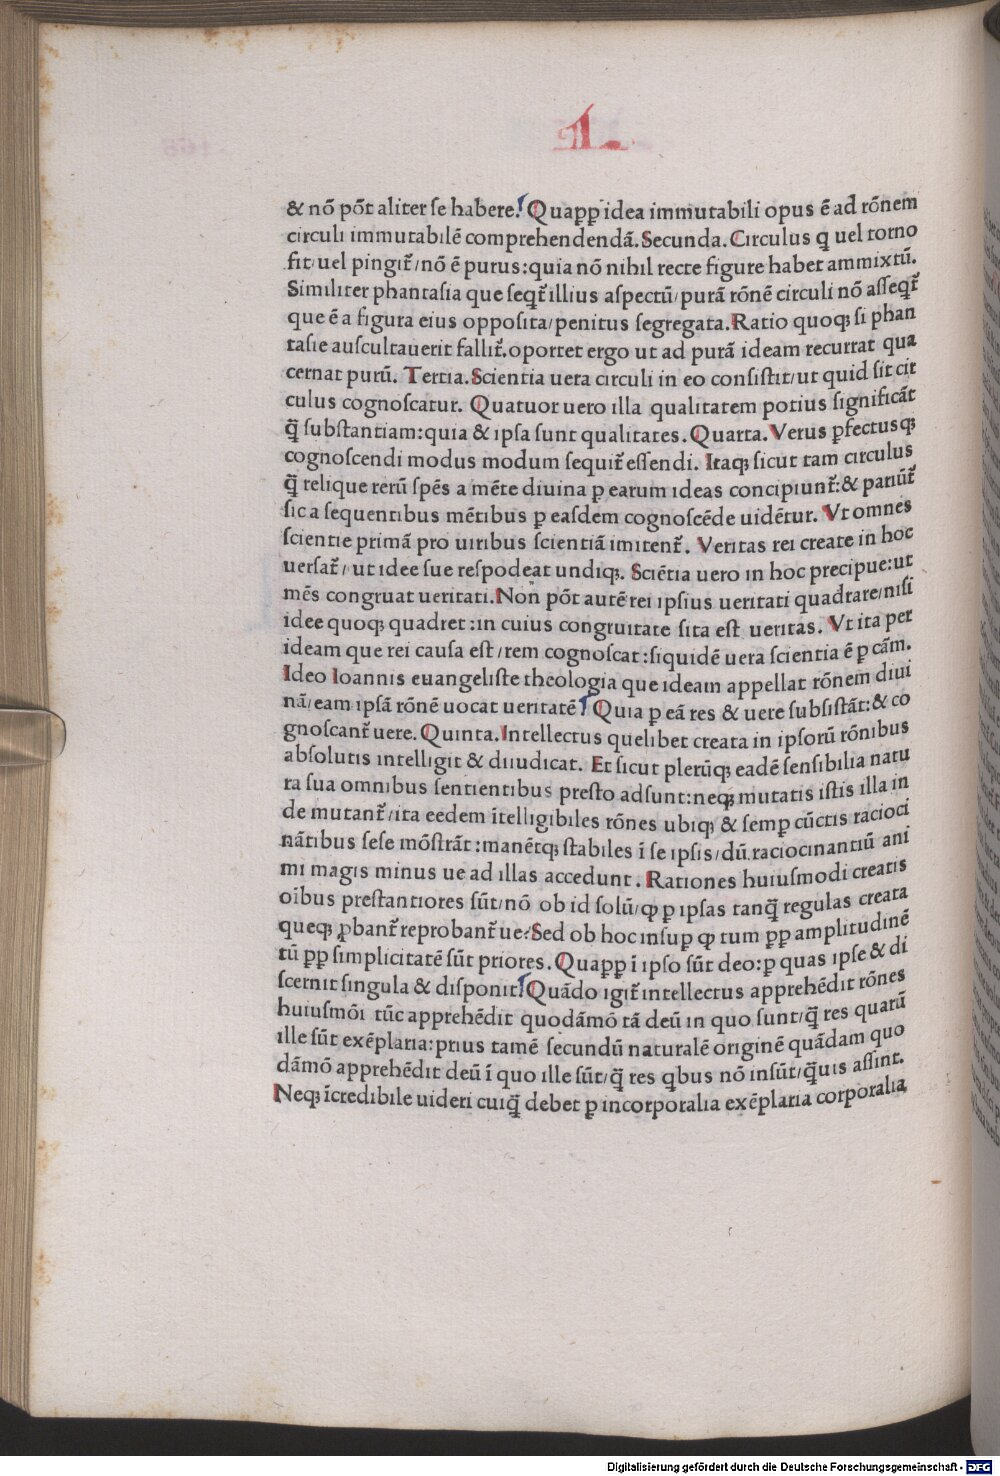 1.
& nõ põt aliter ſe habere. Quapp̱ idea immutabili opus ē ad rõnem
circuli immutabilē comprehendendā. Secunda. Circulus q̱ uel torno
fit/uel pingit̃/nõ ē purus:quia nõ nihil recte figure habet ammixtū.
Similiter phantaſia que ſeqt̃ illius aſpectū/purā rõnē circuli nõ aſſeqt̃
que ē a figura eius oppoſita/penitus ſegregata. Ratio quoqꝫ ſi phan
taſie auſcultauerit fallit̃. oportet ergo ut ad purā ideam recurrat qua
cernat purū. Tertia. Scientia uera circuli in eo conſiſtit/ut quid ſit cir
culus cognoſcatur. Quatuor uero illa qualitatem potius ſignificāt
q̃ ſubſtantiam:quia & ipſa ſunt qualitates. Quarta. Verus ꝑfectusqꝫ
cognoſcendi modus modum ſequit̃ eſſendi. Itaqꝫ ſicut tam circulus
q̃ relique rerū ſpēs a mēte diuina ꝑ earum ideas concipiunt̃:& pariūt̃
ſic a ſequentibus mētibus ꝑ eaſdem cognoſcēde uidētur. Vt omnes
ſcientie primā pro uiribus ſcientiā imitent̃. Veritas rei create in hoc
uerſat̃/ ut idee ſue reſpodeat undiqꝫ. Sciētia uero in hoc precipue:ut
mēs congruat ueritati. Non põt autē rei ipſius ueritati quadrare/niſi
idee quoqꝫ quadret:in cuius congruitate ſita eſt ueritas. Vt ita per
ideam que rei cauſa eſt/rem cognoſcat:ſiquidē uera ſcientia ē ꝑ cām.
Ideo Ioannis euangeliſte theologia que ideam appellat rõnem diui
nā/eam ipſā rõnē uocat ueritatē Quia ꝑ eā res & uere ſubſiſtāt:& co
gnoſcant̃ uere. Quinta. Intellectus quelibet creata in ipſorū rõnibus
abſolutis intelligit & diiudicat. Et ſicut plerūqꝫ eadē ſenſibilia natu
ra ſua omnibus ſentientibus preſto adſunt:neqꝫ mutatis iſtis illa in
de mutant̃/ita eedem ītelligibiles rõnes ubiqꝫ & ſemꝑ cūctis racioci
nātibus ſeſe mõſtrāt:manētqꝫ ſtabiles ī ſe ipſis/dū raciocinantiū ani
mi magis minus ue ad illas accedunt. Rationes huiuſmodi creatis
oībus preſtantiores ſūt/nõ ob id ſolū/ꝙ ꝑ ipſas tanq̃ regulas creata
queqꝫ ꝓbant̃ reprobant̃ ue: Sed ob hoc inſuꝑ ꝙ tum ꝓꝑ amplitudinē
tū ꝓꝑ ſimplicitatē ſūt priores. Quaꝓꝑ ī ipſo ſūt deo:ꝑ quas ipſe & di
ſcernit ſingula & diſponit. Quādo igit̃ intellectus apprehēdit rõnes
huiuſmõi tūc apprehēdit quodāmõ tā deū in quo ſunt/q̃ res quarū
ille ſūt exēplaria:prius tamē ſecundū naturalē originē quādam quo
dāmõ apprehēdit deū ī quo ille ſūt/q̃ res qbus nõ inſūt/q̃uis aſſint.
Neqꝫ īcredibile uideri cuiq̃ debet ꝑ incorporalia exēplaria corporalia
Digitalisierung gefördert durch die Deutsche Forschungsgemeinschaft - DFG